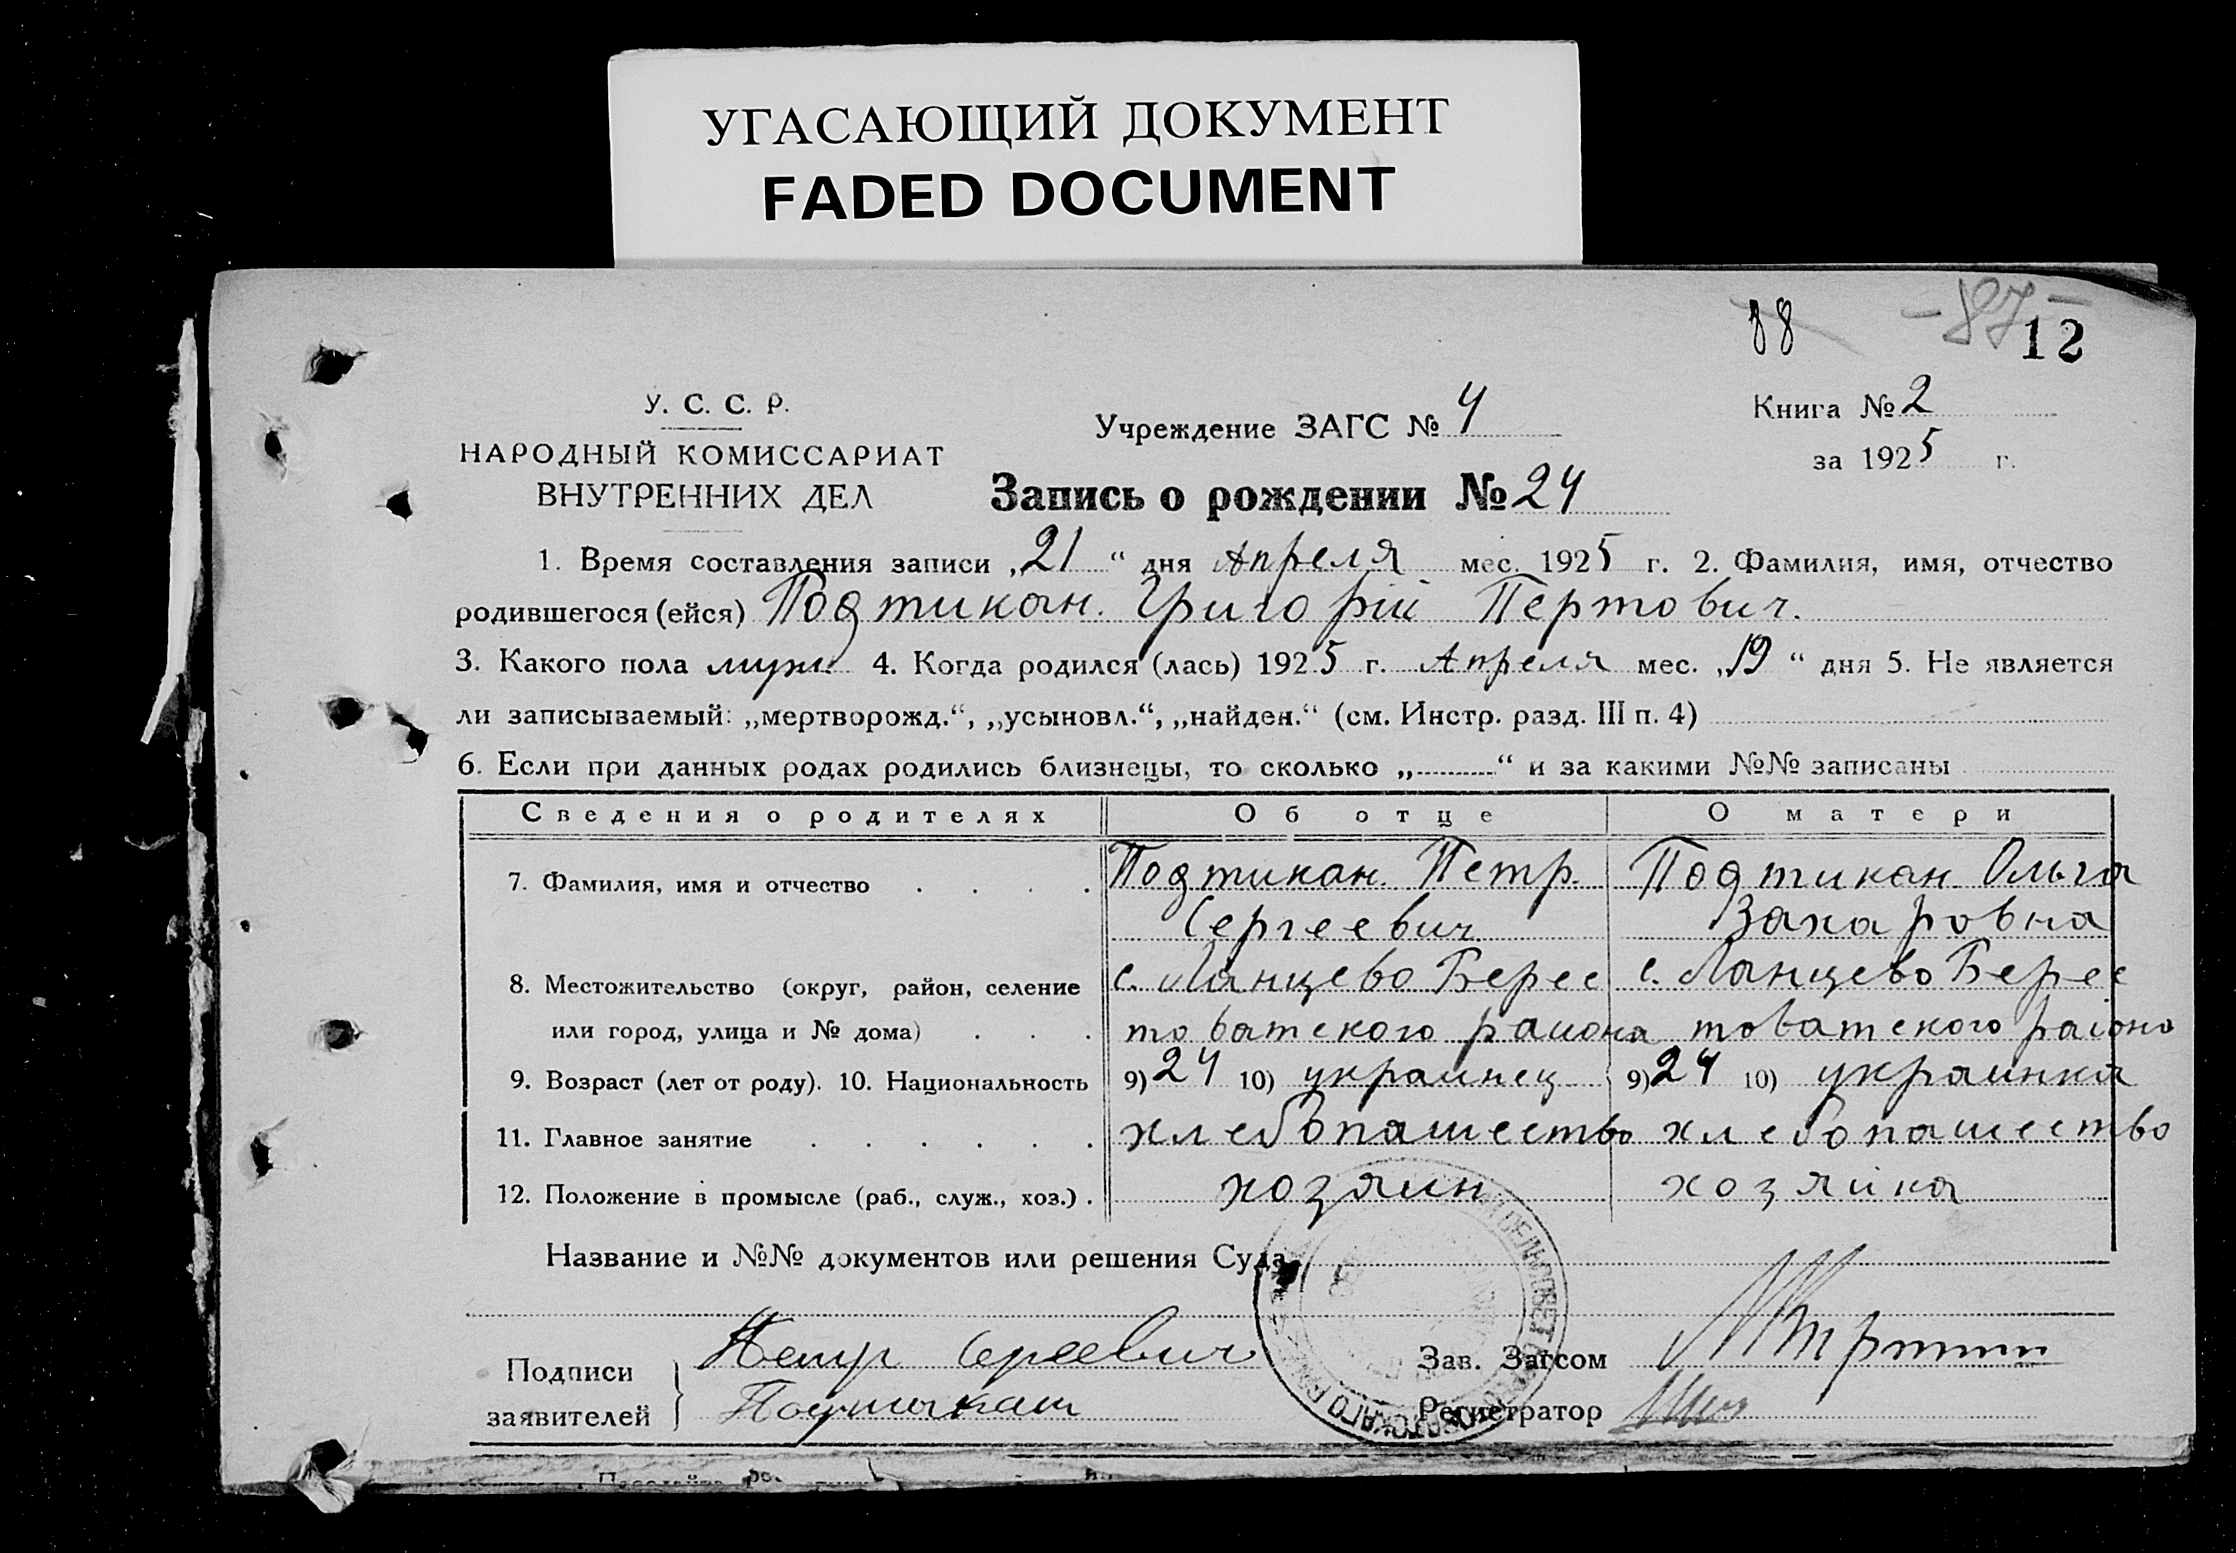 УГАСАЮЩИЙ ДОКУМЕНТ
FADED DOCUMENT
88 -87- 12
У. С. С. Р.
НАРОДНЫЙ КОМИССАРИАТ
ВНУТРЕННИХ ДЕЛ
Учреждение ЗАГС № 4
Книга № 2
за 1925 г.
Запись о рождении № 24
1. Время составления записи „21“ дня Апреля мес. 1925 г. 2. Фамилия, имя, отчество
родившегося (ейся) Подтикан. Григорій Пертович.
3. Какого пола муж. 4. Когда родился (лась) 1925 г. Апреля мес. „19“ дня 5. Не является
ли записываемый: „мертворожд.“, „усыновл.“, „найден.“ (см. Инстр. разд. III п. 4)
6. Если при данных родах родились близнецы, то сколько „..........“ и за какими №№ записаны
Сведения о родителях Об отце О матери
7. Фамилия, имя и отчество . . . . Подтикан. Петр. Подтикан Ольга
Сергеевич Захаровна
8. Местожительство (округ, район, селение с. Ланцево Берес с. Ланцево Берес
или город, улица и № дома) . . . товатского раиона товатского раиона
9. Возраст (лет от роду). 10. Национальность 9) 24 10) украинец 9) 24 10) украинка
11. Главное занятие . . . . . . хлебопашество хлебопашество
12. Положение в промысле (раб., служ., хоз.) . хозяин хозяйка
Название и №№ документов или решения Суда
Подписи
заявителей
Петр Сереевич
Подтыкан
Зав. Загсом
Регистратор
СЕЛЬСОВЕТ